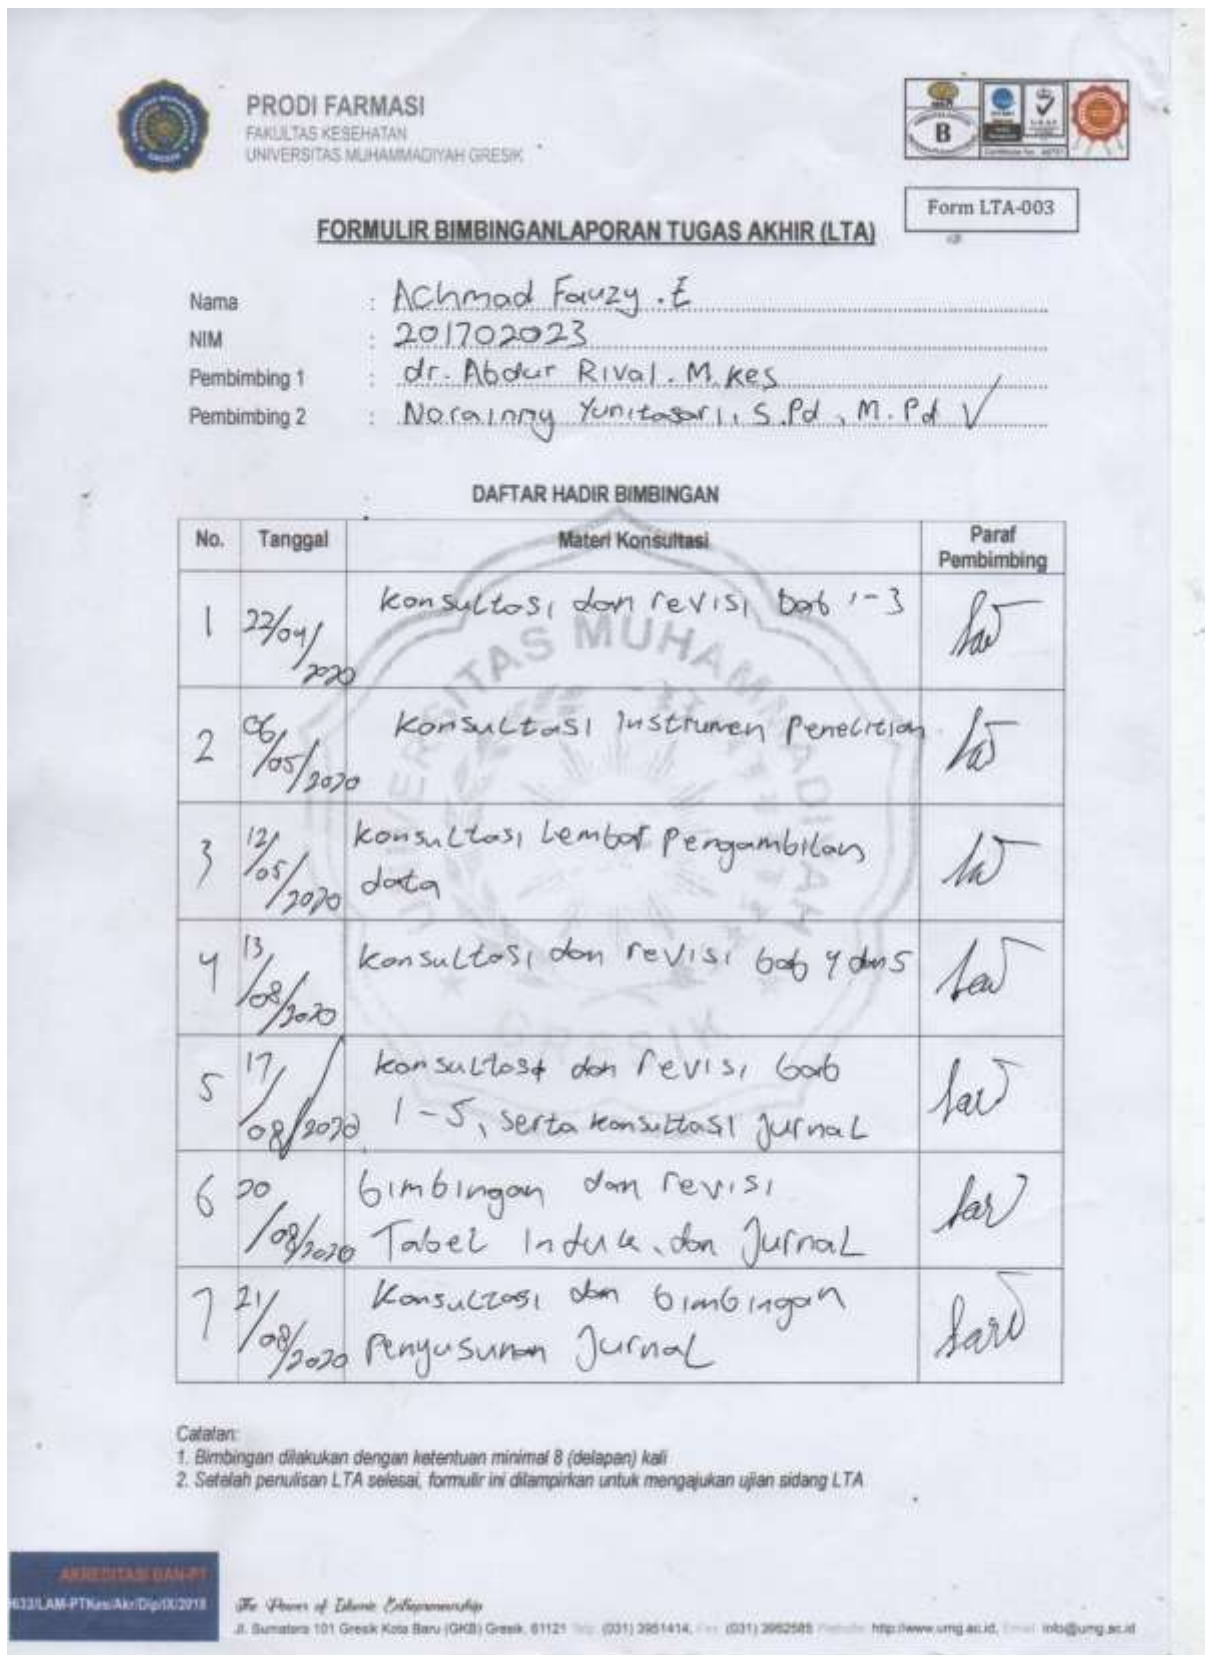 PRODI FARMASI
FAKULTAS KESEHATAN
UNIVERSITAS MUHAMMADIYAH GRESIK
B
Form LTA-003
FORMULIR BIMBINGANLAPORAN TUGAS AKHIR (LTA)
Nama : Achmad Fauzy . E
NIM : 201702023
Pembimbing 1 : dr. Abdur Rival . M. Kes
Pembimbing 2 : Norainny Yunitasari, S.Pd, M.Pd V
DAFTAR HADIR BIMBINGAN
No. Tanggal Materi Konsultasi Paraf Pembimbing
1 22/04/2020 konsultasi dan revisi bab 1-3
2 06/05/2020 Konsultasi Instrumen Penelitian
3 12/05/2020 konsultasi Lembar Pengambilan
data
4 13/08/2020 konsultasi dan revisi bab 4 dan 5
5 17/08/2020 konsultasi dan revisi bab
1-5, serta konsultasi Jurnal
6 20/08/2020 bimbingan dan revisi
Tabel Induk dan Jurnal
7 21/08/2020 Konsultasi dan bimbingan
Penyusunan Jurnal
UNIVERSITAS MUHAMMADIYAH
GRESIK
Catatan:
1. Bimbingan dilakukan dengan ketentuan minimal 8 (delapan) kali
2. Setelah penulisan LTA selesai, formulir ini dilampirkan untuk mengajukan ujian sidang LTA
AKREDITASI BAN-PT
0633/LAM-PTKes/Akr/Dip/IX/2018
The Power of Islamic Entrepreneurship
Jl. Sumatera 101 Gresik Kota Baru (GKB) Gresik, 61121 (031) 3951414, (031) 3952585 http://www.umg.ac.id, info@umg.ac.id